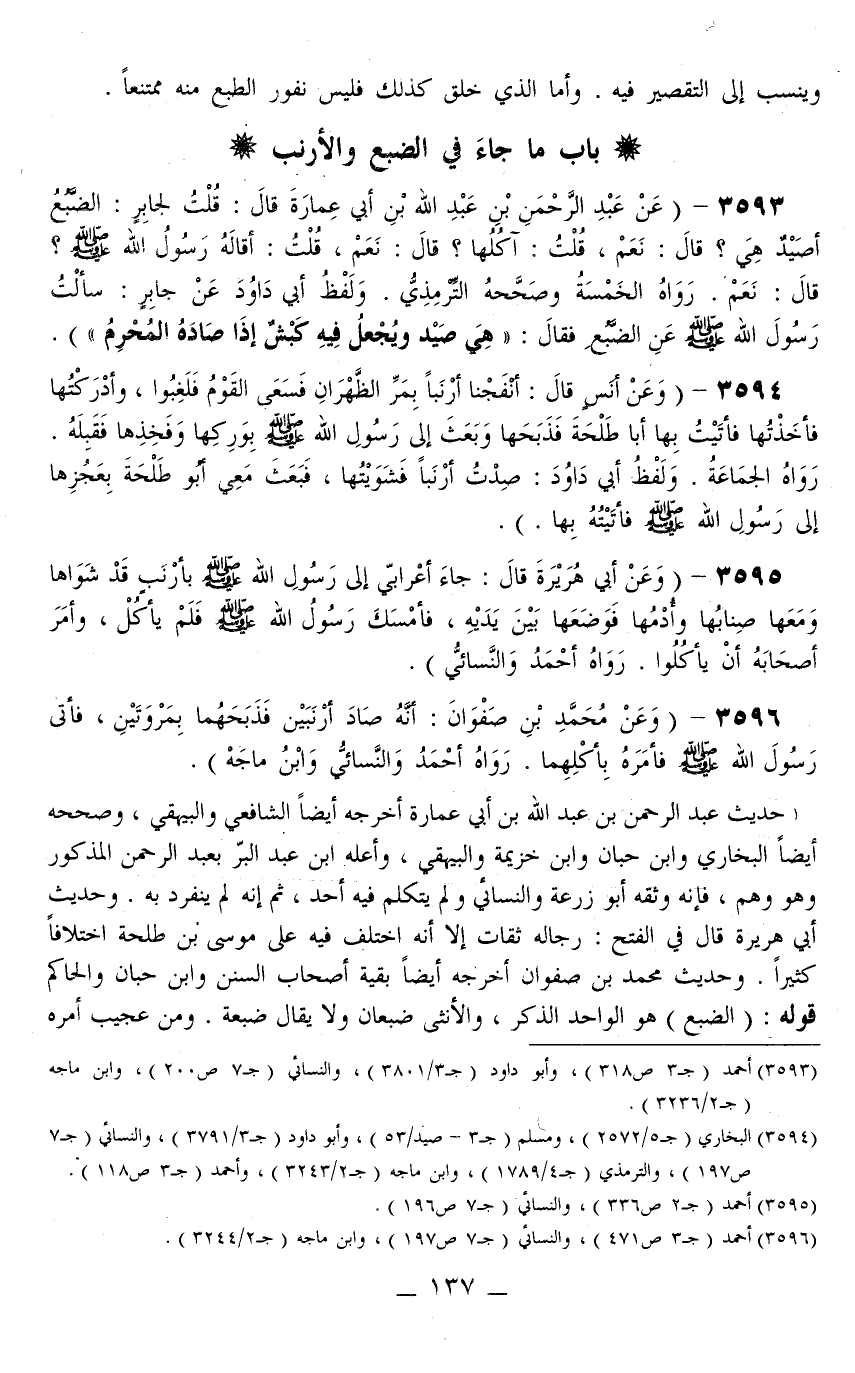 وينسب إلى التقصير فيه . وأما الذي خلق كذلك فليس نفور الطبع منه ممتنعاً .
باب ما جاءَ في الضبع والأرنب
٣٥٩٣ – ( عَنْ عَبْدِ الرَّحْمَنِ بْنِ عَبْدِ الله بْنِ أبي عِمارَةَ قالَ : قُلْتُ لجابِرٍ : الضَّبُعُ
أصَيْدٌ هِيَ ؟ قالَ : نَعَمْ ، قُلْتُ : آكُلُها ؟ قالَ : نَعَمْ ، قُلْتُ : أقالَهُ رَسُولُ الله ﷺ ؟
قالَ : نَعَمْ . رَوَاهُ الخَمْسَةُ وصَحَّحهُ التِّرْمِذِيُّ . وَلَفْظُ أبي دَاوُدَ عَنْ جابِرٍ : سألْتُ
رَسُولَ الله ﷺ عَنِ الضَّبُعِ فقالَ : « هِيَ صَيْد ويُجْعلُ فِيهِ كَبْشٌ إذَا صادَهُ المُحْرِمُ » ) .
٣٥٩٤ – ( وَعَنْ أنَسٍ قالَ : أنْفَجْنا أرْنَباً بِمَرِّ الظَّهْرَانِ فَسَعَى القَوْمُ فَلَغِبُوا ، وأدْرَكْتُها
فأخَذْتُها فأتَيْتُ بِها أبا طَلْحَةَ فَذَبَحَها وَبَعَثَ إلى رَسُولِ الله ﷺ بِوَرِكِها وَفَخِذِها فَقَبِلَهُ .
رَوَاهُ الجَمَاعَةُ . وَلَفْظُ أبي دَاوُدَ : صِدْتُ أرْنَباً فَشَوَيْتُها ، فَبَعَثَ مَعِي أبُو طَلْحَةَ بِعَجُزِها
إلى رَسُولِ الله ﷺ فأتَيْتُهُ بِها . ) .
٣٥٩٥ – ( وَعَنْ أبي هُرَيْرَةَ قالَ : جاءَ أعْرابيّ إلى رَسُولِ الله ﷺ بأرْنَبٍ قَدْ شَوَاها
وَمَعَها صِنابُها وأُدْمُها فَوَضَعَها بَيْنَ يَدَيْهِ ، فأمْسَكَ رَسُولُ الله ﷺ فَلَمْ يأكُلْ ، وأمَرَ
أصحَابَهُ أنْ يأكُلُوا . رَوَاهُ أحْمَدُ وَالنَّسائيُّ ) .
٣٥٩٦ – ( وَعَنْ مُحَمَّدِ بْنِ صَفْوَانَ : أنَّهُ صَادَ أرْنَبَيْنِ فَذَبَحَهُما بِمَرْوَتَيْنِ ، فأتى
رَسُولَ الله ﷺ فأمَرَهُ بِأكْلِهِما . رَوَاهُ أحْمَدُ وَالنَّسائيُّ وَابْنُ ماجَهْ ) .
١ حديث عبد الرحمن بن عبد الله بن أبي عمارة أخرجه أيضاً الشافعي والبيهقي ، وصححه
أيضاً البخاري وابن حبان وابن خزيمة والبيهقي ، وأعله ابن عبد البرّ بعبد الرحمن المذكور
وهو وهم ، فإنه وثقه أبو زرعة والنسائي ولم يتكلم فيه أحد ، ثم إنه لم ينفرد به . وحديث
أبي هريرة قال في الفتح : رجاله ثقات إلا أنه اختلف فيه على موسى بن طلحة اختلافاً
كثيراً . وحديث محمد بن صفوان أخرجه أيضاً بقية أصحاب السنن وابن حبان والحاكم
قوله : ( الضبع ) هو الواحد الذكر ، والأنثى ضبعان ولا يقال ضبعة . ومن عجيب أمره
(٣٥٩٣) أحمد ( جـ٣ ص٣١٨ ) ، وأبو داود ( جـ٣٨٠١/٣ ) ، والنسائي ( جـ٧ ص٢٠٠ ) ، وابن ماجه
( جـ٣٢٣٦/٢ ) .
(٣٥٩٤) البخاري ( جـ٢٥٧٢/٥ ) ، ومسلم ( جـ٣ – صيد/٥٣ ) ، وأبو داود ( جـ٣٧٩١/٣ ) ، والنسائي ( جـ٧
ص١٩٧ ) ، والترمذي ( جـ١٧٨٩/٤ ) ، وابن ماجه ( جـ٣٢٤٣/٢ ) ، وأحمد ( جـ٣ ص١١٨ ) .
(٣٥٩٥) أحمد ( جـ٢ ص٣٣٦ ) ، والنسائي ( جـ٧ ص١٩٦ ) .
(٣٥٩٦) أحمد ( جـ٣ ص٤٧١ ) ، والنسائي ( جـ٧ ص١٩٧ ) ، وابن ماجه ( جـ٣٢٤٤/٢ ) .
– ١٣٧ –